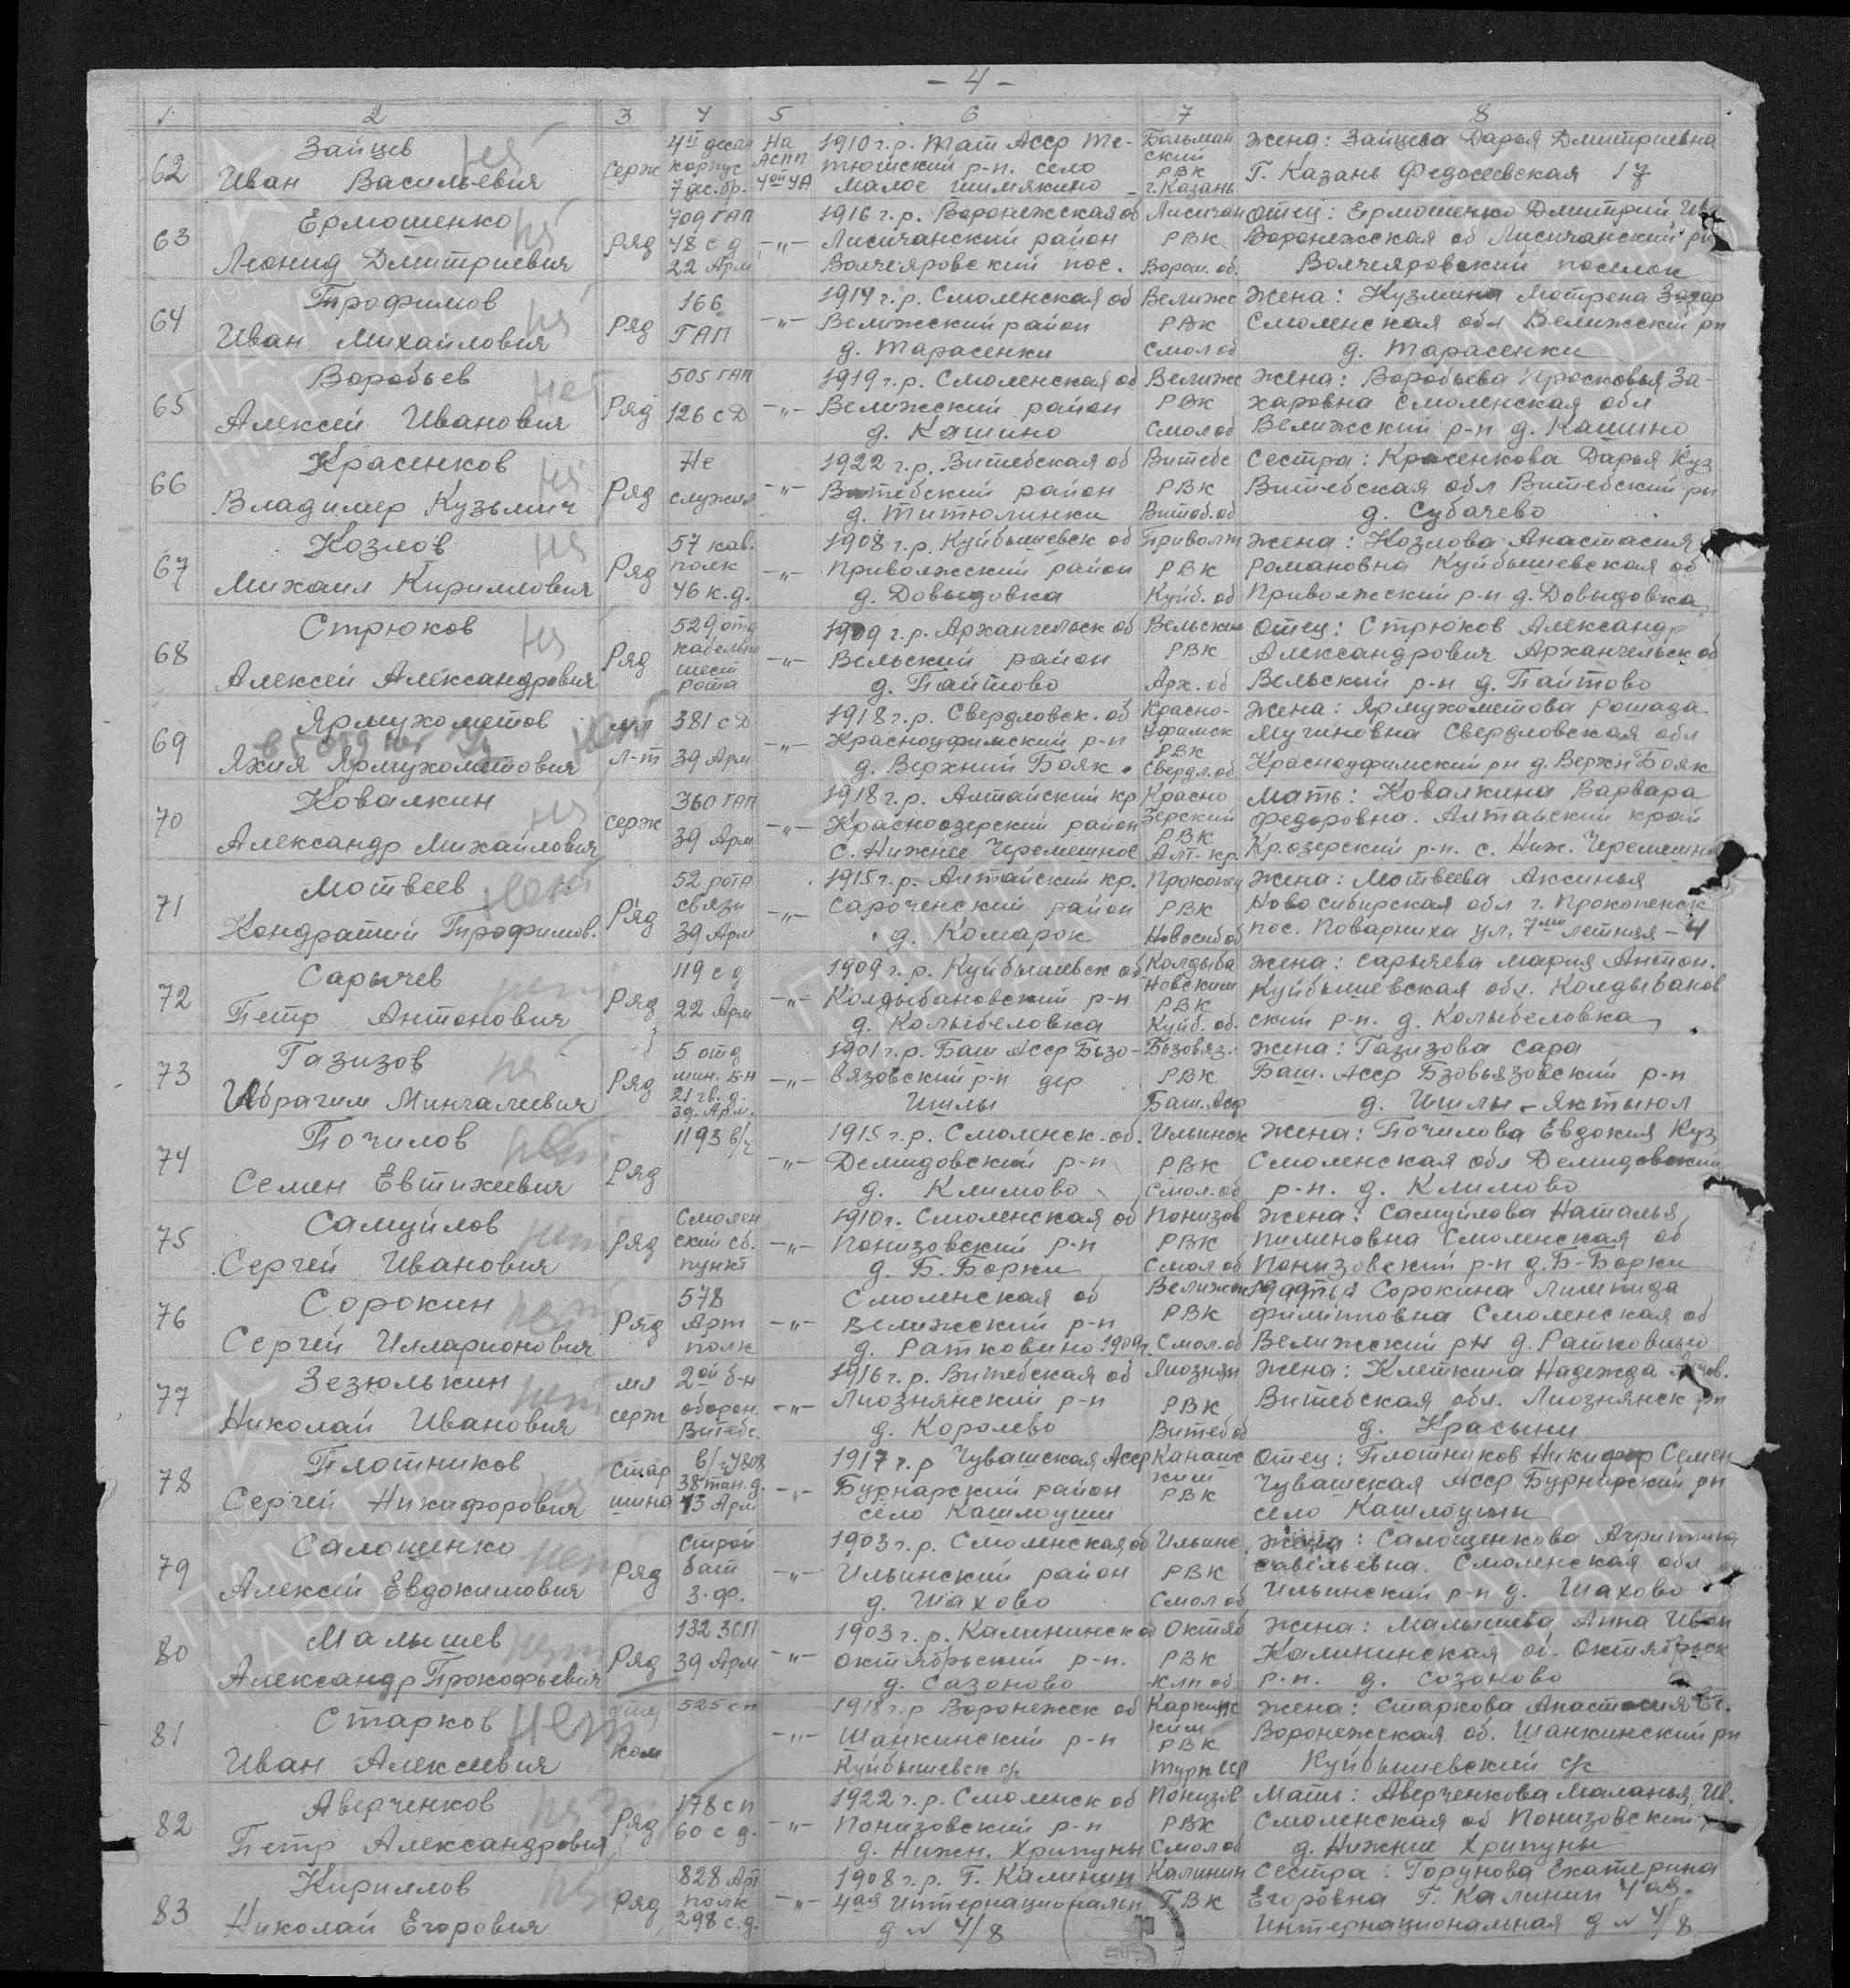 - 4 -
1 2 3 4 5 6 7 8
62 Зайцев Иван Васильевич Серж 4й десан корпус 7 дес. бр. На АСПП 4ой УА 1910 г.р. Тат Асср Те-тюшский р-н. село Малое Шимякино Бауман ский РВК г. Казань Жена: Зайцева Дарья Дмитриевна Г. Казань Федосеевская 17
63 Ермошенко Леонид Дмитриевич Ряд 709 ГАП 48 с д 22 Арм -"- 1916 г.р. Воронежская об Лисичанский район Волчеяровский пос. Лисичан РВК Ворош. об. Отец: Ермошенко Дмитрий Ива Воронежская об Лисичанский рн Волчеяровский поселок
64 Трофимов Иван Михайлович Ряд 166 ГАП -"- 1914 г.р. Смоленская об Велижский район д. Тарасенки Велижс РВК Смол об Жена: Кузмина Мотрена Захар Смоленская обл Велижский рн д. Тарасенки
65 Воробьев Алексей Иванович нет Ряд 505 ГАП 126 с д -"- 1919 г.р. Смоленская об Велижский район д. Кашино Велижс РВК Смол об Жена: Воробьева Просковья За-харовна Смоленская обл Велижский р-н д. Кашино
66 Красенков Владимер Кузьмич Ряд Не служил -"- 1922 г.р. Витебская об Витебский район д. Титюлинки Витебс РВК Витеб. об Сестра: Красенкова Дарья Куз Витебская обл Витебский рн д. Субачево
67 Козлов Михаил Кириллович Ряд 57 кав. полк 46 к.д. -"- 1908 г.р. Куйбышевск об Приволжский район д. Довыдовка Приволж РВК Куйб. об Жена: Козлова Анастасия Романовна Куйбышевская об Приволжский р-н д. Довыдовка
68 Стрюков Алексей Александрович Ряд 529 отд кабельн шест рота -"- 1909 г.р. Архангельск об Вельский район д. Пайтово Вельский РВК Арх. об Отец: Стрюков Александр Александрович Архангельск об Вельский р-н д. Пайтово
69 Ярмухометов Яхия Ярмухоматович мл л-т 381 с д 39 Арм -"- 1918 г.р. Свердловск. об Красноуфимский р-н д. Верхний Бояк. Красно-Уфимск РВК Свердл. об Жена: Ярмухометова Рошада Мугиновна Свердловская обл Красноуфимский рн д. Верхн Бояк
70 Ковалкин Александр Михайлович серж 360 ГАП 39 Арм -"- 1918 г.р. Алтайский кр Красноозерский район с. Нижнее Черемешное Красно Зерский РВК Алт. кр. Мать: Ковалкина Варвара Федоровна. Алтайский край Кр.озерский р-н. с. Ниж. Черемешно
71 Мотвеев Кондратий Трофимов. Ряд 52 рота связи 39 Арм -"- 1915 г.р. Алтайский кр. Сароченский район д. Комарок Прокопец РВК Новосиб об Жена: Мотвеева Аксинья Новосибирская обл г. Прокопенск пос. Поварниха ул. 7ми летия - 4
72 Сарычев Петр Антонович нет Ряд 119 с д 22 Арм -"- 1909 г.р. Куйбышевск об Колдыбановский р-н д. Колыбеловка Колдыба новский РВК Куйб. об. Жена: Сарычева Мария Антон. Куйбышевская обл. Колдыбанов ский р-н. д. Колыбеловка
73 Газизов Ибрагим Мингалиевич Ряд 5 отд мин. б-н 21 гв. д. 39. Арм. -"- 1901 г.р. Баш Асср Бызо-вязовский р-н дер Шилы Бызовяз. РВК Баш. Асср Жена: Газизова Сара Баш. Асср Бзовьязовский р-н д. Шилы - Яктыюл
74 Почилов Семен Евтихиевич нет Ряд 1193 в/ч -"- 1915 г.р. Смоленск. об. Демидовский р-н д. Климово Ильинск РВК Смол. об Жена: Почилова Евдокия Куз Смоленская обл Демидовский р-н. д. Климово
75 Самуйлов Сергей Иванович нет Ряд Смолен ский сб. пункт -"- 1910 г. Смоленская об Понизовский р-н д. Б. Борки Понизов РВК Смол об Жена: Самуйлова Наталья Пименовна Смоленская об Понизовский р-н д. Б-Борки
76 Сорокин Сергей Илларионович нет Ряд 578 Арт полк -"- Смоленская об Велижский р-н д. Ратковино 1909г. Велижск РВК Смол. об Мать Сорокина Лимпида Филипповна Смоленская об Велижский рн д. Ратковино
77 Зезюлькин Николай Иванович нет мл серж 2ой б-н оборон. Витебс. -"- 1916 г.р. Витебская об Лиознянский р-н д. Королево Лиознян РВК Витеб об Жена: Клеткина Надежда Витебская обл. Лиознянск рн д. Красыни
78 Плотников Сергей Никифорович Стар шина в/ч 4808 38 тан. д. 13 Арм -"- 1917 г.р Чувашская Асср Бурнарский район село Кашлоуши Канашс кий РВК Отец: Плотников Никифор Семен Чувашская Асср Бурнарский рн село Кашлоуши
79 Салощенко Алексей Евдокимович нет Ряд Строй бат З. ф. -"- 1903 г.р. Смоленская об Ильинский район д. Шахово Ильинс. РВК Смол об Жена: Салощенкова Агрипина Савельевна. Смоленская обл Ильинский р-н д. Шахово
80 Малышев Александр Прокофьевич нет Ряд 132 ЗСП 39 Арм -"- 1903 г.р. Калининск об Октябрьский р-н. д. Сазоново Октяб РВК Клн об Жена: Малышева Анна Иван Калининская об. Октябрьск р-н. д. Созоново
81 Старков Иван Алексеевич нет ком 525 сп -"- 1918 г.р Воронежск об Шанкинский р-н Куйбышевск с/х Каркинс кий РВК Турк сср Жена: Старкова Анастасия Ег. Воронежская об. Шанкинский рн Куйбышевский с/х
82 Аверченков Петр Александрович Ряд 178 сп 60 с д. -"- 1922 г.р. Смоленск об Понизовский р-н д. Нижн. Хрипуны Понизов РВК Смол об Мать: Аверченкова Маланья Ив. Смоленская об Понизовский д. Нижние Хрипуны
83 Кириллов Николай Егорович Ряд 828 Арт полк 298 с.д. -"- 1908 г.р. Г. Калинин 4ая Интернационален д № 4/8 Калинин ГВК Сестра: Горунова Екатерина Егоровна Г. Калинин 4ая. Интернациональная д № 4/8